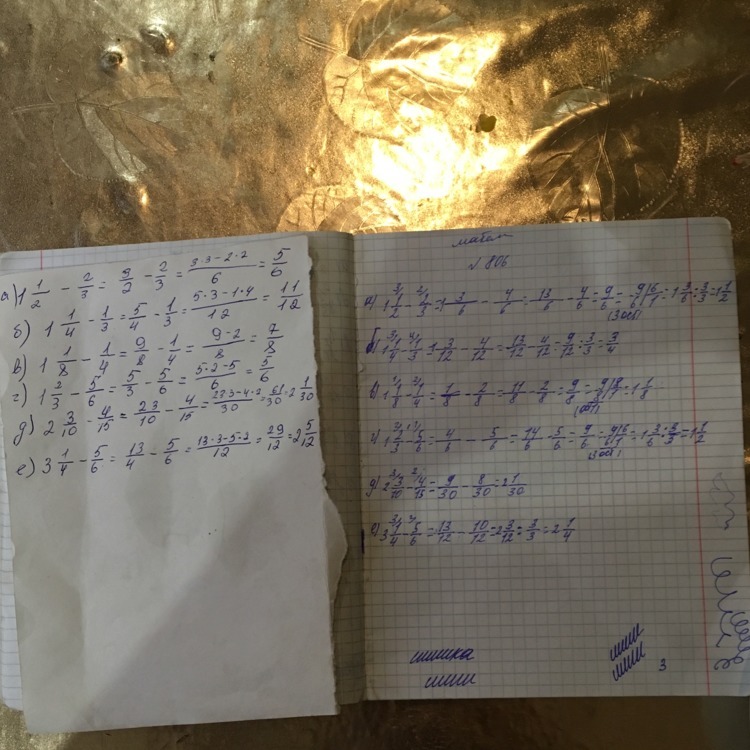 а) 1 1/2 - 2/3 = 3/2 - 2/3 = 3·3-2·2/6 = 5/6
б) 1 1/4 - 1/3 = 5/4 - 1/3 = 5·3-1·4/12 = 11/12
в) 1 1/8 - 1/4 = 9/8 - 1/4 = 9-2/8 = 7/8
г) 1 2/3 - 5/6 = 5/3 - 5/6 = 5·2-5/6 = 5/6
д) 2 3/10 - 4/15 = 23/10 - 4/15 = 23·3-4·2/30 = 61/30 = 2 1/30
е) 3 1/4 - 5/6 = 13/4 - 5/6 = 13·3-5·2/12 = 29/12 = 2 5/12
матем
№ 806
а) 1 1/2 - 2/3 = 1 3/6 - 4/6 = 13/6 - 4/6 = 9/6 = 1 3/6 : 3/3 = 1 1/2
б) 1 1/4 - 1/3 = 1 3/12 - 4/12 = 13/12 - 4/12 = 9/12 : 3/3 = 3/4
в) 1 1/8 - 1/4 = 1/8 - 2/8 = 11/8 - 2/8 = 9/8 = 1 1/8
г) 1 2/3 - 5/6 = 4/6 - 5/6 = 14/6 - 5/6 = 9/6 = 1 3/6 : 3/3 = 1 1/2
д) 2 3/10 - 4/15 = 9/30 - 8/30 = 2 1/30
е) 3 1/4 - 5/6 = 13/12 - 10/12 = 2 3/12 : 3/3 = 2 1/4
3